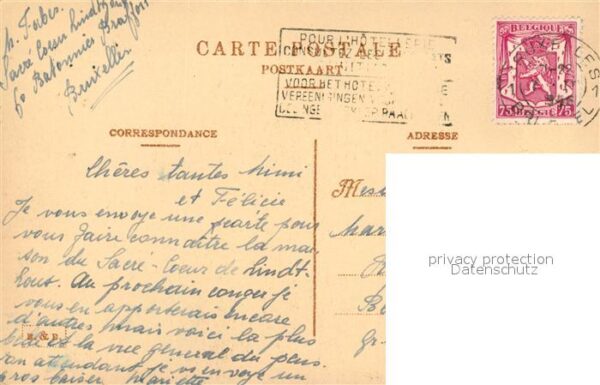 Sacré Coeur Lindthout
Bruxelles
CARTE POSTALE
POSTKAART
POUR L'HÔTELLERIE
VOOR HET HOTEL
VEREENIGINGEN
BELGIQUE
75 BELGIE 75
CORRESPONDANCE
ADRESSE
Chères tantes Mimi
et Félicie
Je vous envoye une carte pour
vous faire connaître la mai
son du Sacré-Coeur de Lindt-
hout. Au prochain congé je
vous en apporterais encore
d'autres mais voici la plus
et la vue general du pens.
en attendant je vs envoye un
gros baiser Mariette
Mes
Mar
privacy protection
Datenschutz